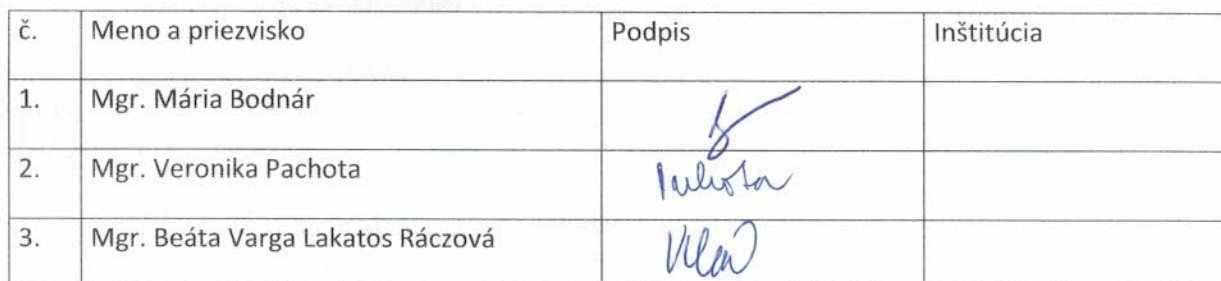 č. Meno a priezvisko Podpis Inštitúcia
1. Mgr. Mária Bodnár
2. Mgr. Veronika Pachota
3. Mgr. Beáta Varga Lakatos Ráczová